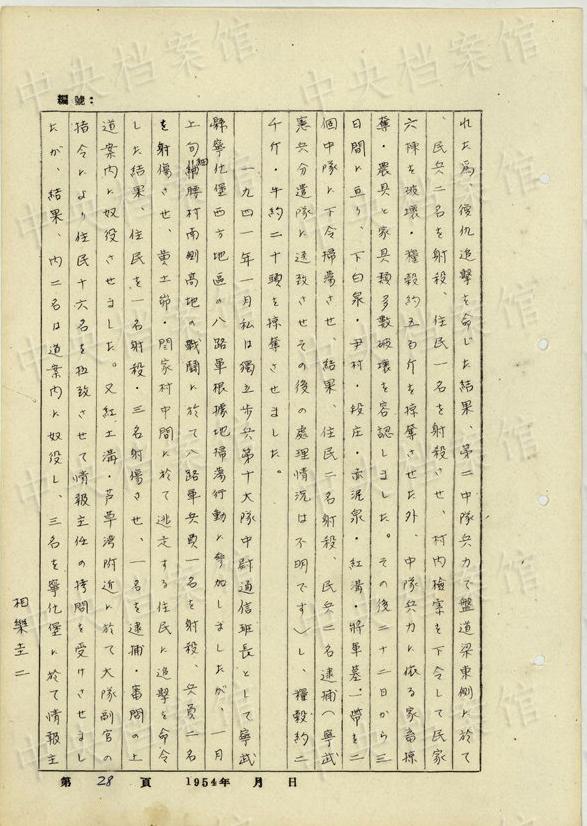 編號：
れた為、復仇追撃を命じた結果、第二中隊兵力で盤道梁東側に於て
、民兵二名を射殺、住民一名を射殺させ、村内検索を下令して民家
六棟を破壊・糧穀約五百斤を掠奪させた外、中隊兵力に依る家畜掠
奪・農具と家具類多数破壊を容認しました。その後二十二日から三
日間に亘り、下白泉・尹村・段庄・赤泥泉・紅溝・將軍墓一帶を二
個中隊に下令掃蕩させ、結果、住民二名射殺、民兵二名逮捕（寧武
憲兵分遣隊に送致させその後の処理情況は不明です）し、糧穀約二
千斤・牛約二十頭を掠奪させました。
一九四一年一月私は獨立歩兵第十大隊中尉通信班長として寧武
縣寧化堡西方地區の八路軍根據地掃蕩行動に参加しましたが、一月
上旬細腰村南側高地の戰闘に於て八路軍兵員一名を射殺 兵員二名
を射傷させ、黄土峁・閆家村中間に於て逃走する住民に追撃を命令
した結果 住民を一名射殺・三名射傷させ、一名を逮捕・審問の上
道案内に奴役させました。又紅土溝・芦草湾附近に於て大隊副官の
指令により住民十六名を拉致させて情報主任の拷問を受けさせまし
たが、結果、内二名は道案内に奴役し、三名を寧化堡に於て情報主
相樂圭二
第 28 頁 1954年 月 日
中央档案馆